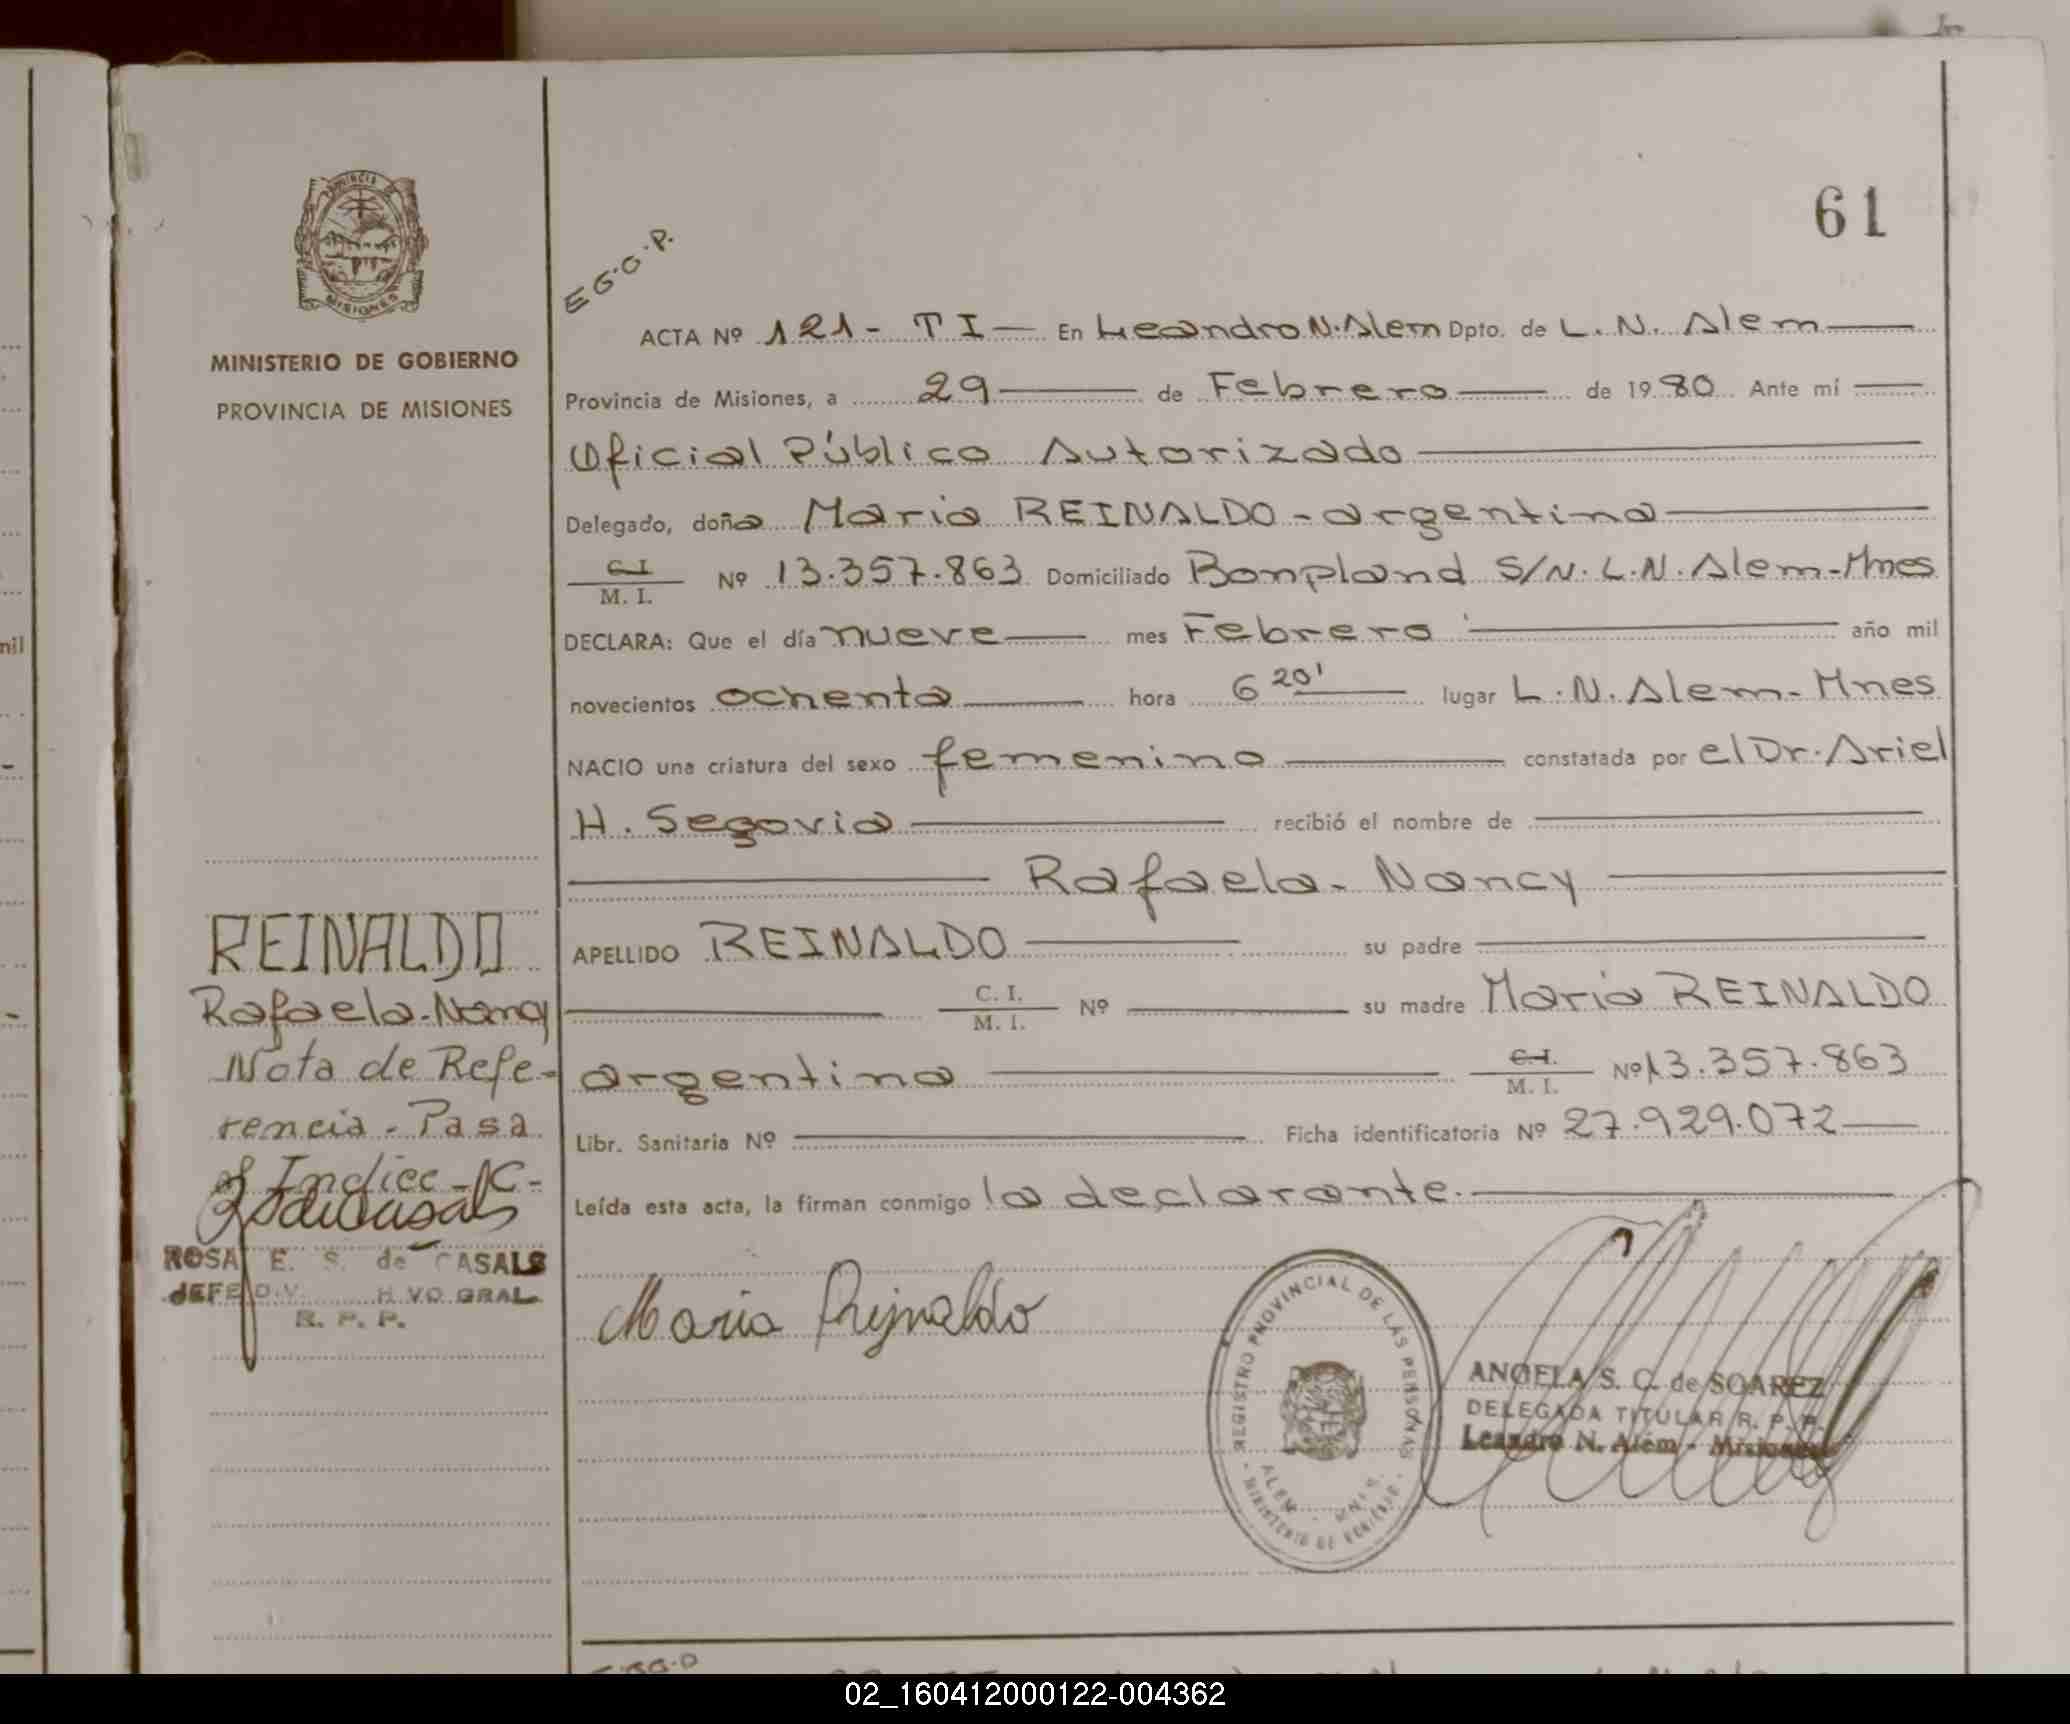 61
PROVINCIA DE
MISIONES
MINISTERIO DE GOBIERNO
PROVINCIA DE MISIONES
E G.G.P.
ACTA Nº 121- T I — En Leandro N. Alem Dpto. de L. N. Alem
Provincia de Misiones, a 29 de Febrero de 1980 Ante mí
Oficial Público Autorizado
Delegado, doña Maria REINALDO - argentina
C.I. M. I. Nº 13.357.863 Domiciliado Bonpland S/N. L.N. Alem-Mnes
DECLARA: Que el día nueve mes Febrero año mil
novecientos ochenta hora 6 20' lugar L.N. Alem- Mnes
NACIO una criatura del sexo femenino constatada por el Dr. Ariel
H. Segovia recibió el nombre de
Rafaela- Nancy
APELLIDO REINALDO su padre
C. I. M. I. Nº su madre Maria REINALDO
argentina C.I. M. I. Nº 13.357.863
Libr. Sanitaria Nº Ficha identificatoria Nº 27.929.072
Leída esta acta, la firman conmigo la declarante.
REINALDO
Rafaela-Nancy
Nota de Refe-
rencia - Pasa
Indice - C-
ROSA E. S. de CASALS
JEFE DIV. H VO GRAL.
R. P. P.
Maria Reynaldo
REGISTRO PROVINCIAL DE LAS PERSONAS
ALEM - MNES.
- MINISTERIO DE GOBIERNO -
ANGELA S. C. de SOAREZ
DELEGADA TITULAR R. P. P.
Leandro N. Alem - Misiones
nil
02_160412000122-004362